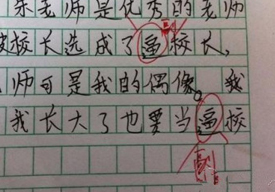 朱老师是优秀的老师
被校长选成了逼校长,
师可是我的偶像。我
我长大了也要当逼校
副